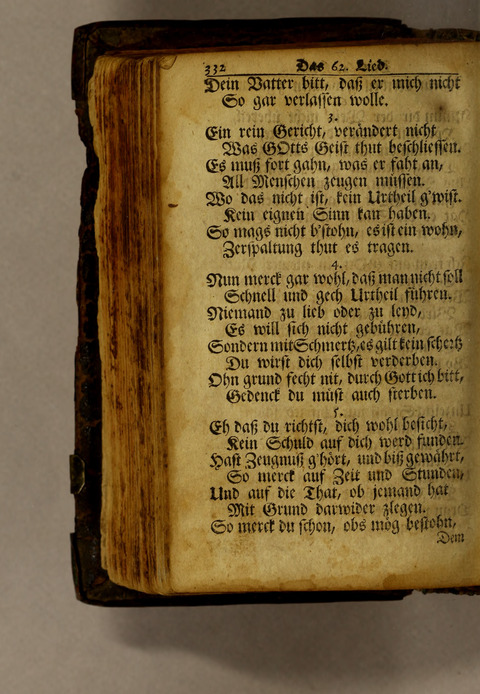 332 Das 62. Lied.
Dein Vatter bitt, daß er mich nicht
So gar verlassen wolle.
3.
Ein rein Gericht, verändert nicht
Was GOtts Geist thut beschliessen.
Es muß fort gahn, was er faht an,
All Menschen zeugen müssen.
Wo das nicht ist, kein Urtheil g'wist.
Kein eignen Sinn kan haben.
So mags nicht b'stohn, es ist ein wohn,
Zerspaltung thut es tragen.
4.
Nun merck gar wohl, daß man nicht soll
Schnell und gech Urtheil führen.
Niemand zu lieb oder zu leyd,
Es will sich nicht gebühren,
Sondern mit Schmertz, es gilt kein schertz
Du wirst dich selbst verderben.
Ohn grund fecht nit, durch Gott ich bitt,
Gedenck du must auch sterben.
5.
Eh daß du richtst, dich wohl besicht,
Kein Schuld auf dich werd funden.
Hast Zeugnuß g'hört, und biß gewährt,
So merck auf Zeit und Stunden,
Und auf die That, ob jemand hat
Mit Grund darwider zlegen.
So merck du schon, obs mög bestohn,
Dem